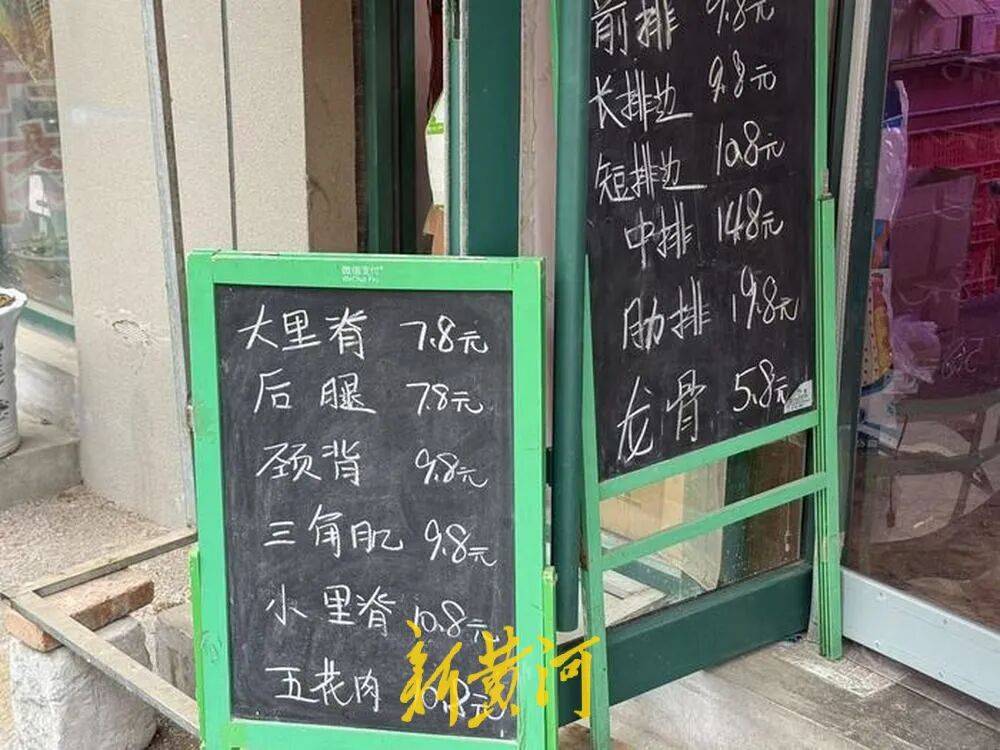 微信支付
WeChat Pay
大里脊 7.8元
后腿 7.8元
颈背 9.8元
三角肌 9.8元
小里脊 10.8元
五花肉
新黄河
前排 9.8元
长排边 9.8元
短排边 10.8元
中排 14.8元
肋排 19.8元
龙骨 5.8元